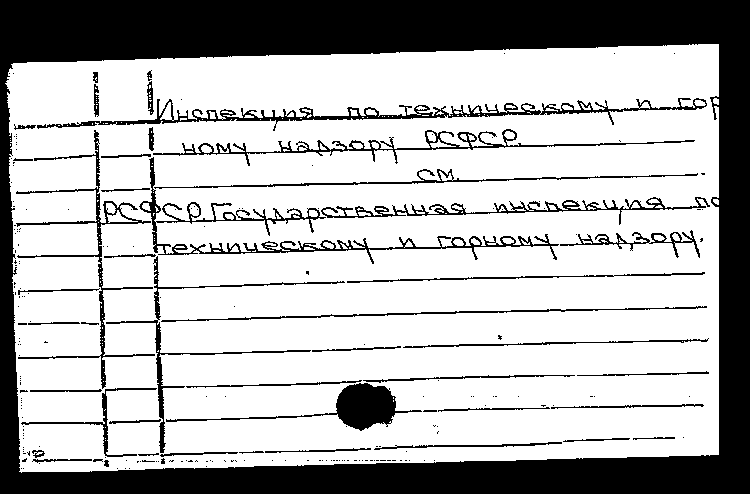 Инспекция по техническому и гор
ному надзору РСФСР.
см.
РСФСР. Государственная инспекция по
техническому и горному надзору.